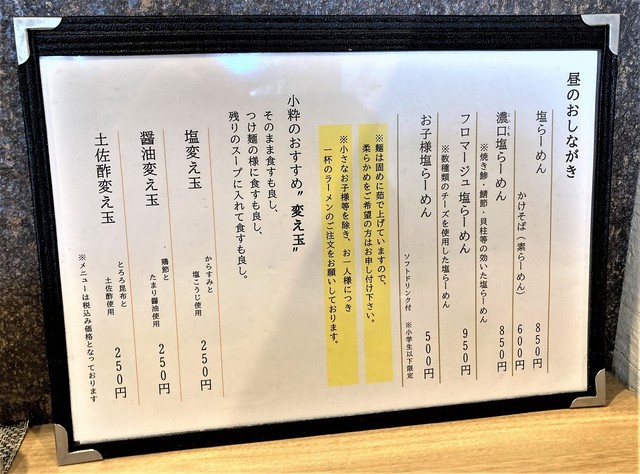 昼のおしながき
塩らーめん 850円
かけそば(素らーめん) 600円
濃口塩らーめん 850円
※焼き鯵・鯖節・貝柱等の効いた塩らーめん
フロマージュ塩らーめん 950円
※数種類のチーズを使用した塩らーめん
お子様塩らーめん 500円
ソフトドリンク付 ※小学生以下限定
※麺は固めに茹で上げていますので、
柔らかめをご希望の方はお申し付け下さい。
※小さなお子様等を除き、お一人様につき
一杯のラーメンのご注文をお願いしております。
小粋のおすすめ”変え玉”
そのまま食すも良し、
つけ麺の様に食すも良し、
残りのスープに入れて食すも良し。
塩変え玉 250円
からすみと
塩こうじ使用
醤油変え玉 250円
鶏節と
たまり醤油使用
土佐酢変え玉 250円
とろろ昆布と
土佐酢使用
※メニューは税込み価格となっております